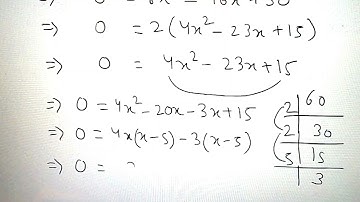 ⇒ 0 = 2(4x² - 23x + 15)
⇒ 0 = 4x² - 23x + 15
⇒ 0 = 4x² - 20x - 3x + 15
⇒ 0 = 4x(x-5) - 3(x-5)
⇒ 0 =
2 | 60
2 | 30
5 | 15
3